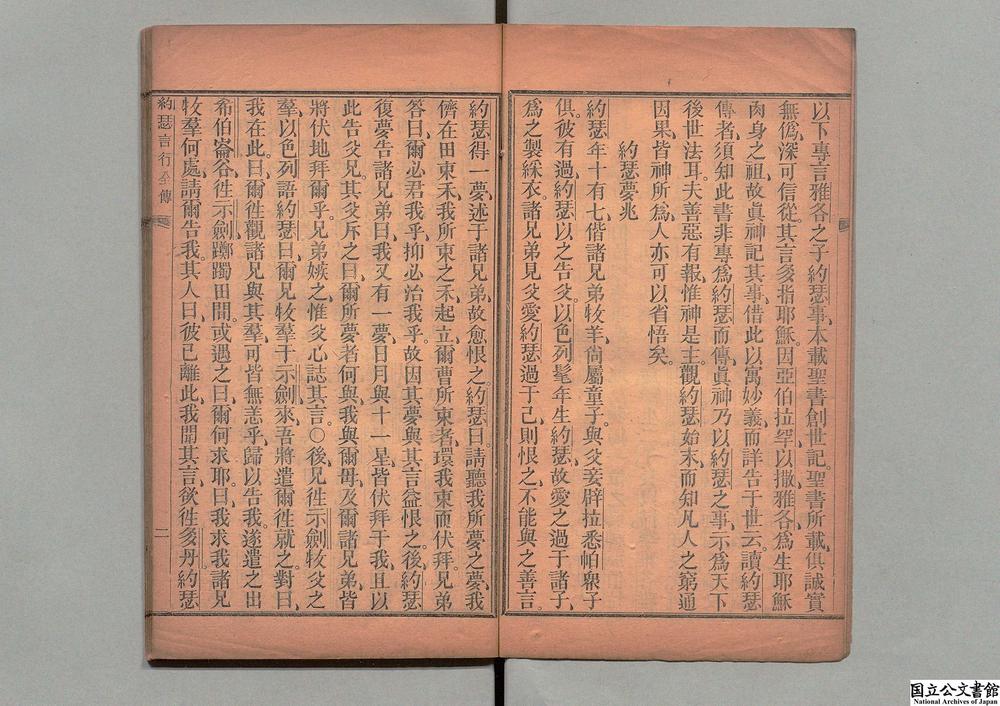 以下專言雅各之子約瑟事、本載聖書創世記。聖書所載、俱誠實
無僞、深可信從。其言多指耶穌。因亞伯拉罕、以撒、雅各、爲生耶穌
肉身之祖、故眞神記其事、借此以寓妙義、而詳告于世云。讀約瑟
傳者、須知此書非專爲約瑟而傳、眞神乃以約瑟之事、示爲天下
後世法耳。夫善惡有報、惟神是主。觀約瑟始末、而知凡人之窮通
因果、皆神所爲、人亦可以省悟矣。
約瑟夢兆
約瑟年十有七、偕諸兄弟牧羊、尚屬童子。與父妾辟拉悉帕眾子
俱。彼有過、約瑟以之告父。以色列髦年生約瑟、故愛之過于諸子、
爲之製綵衣。諸兄弟見父愛約瑟過于己、則恨之、不能與之善言。
約瑟得一夢、述于諸兄弟、故愈恨之。約瑟曰、請聽我所夢之夢、我
儕在田束禾、我所束之禾起立、爾曹所束者、環我束而伏拜。兄弟
答曰、爾必君我乎、抑必治我乎。故因其夢與其言益恨之。後約瑟
復夢、告諸兄弟曰、我又有一夢、日月與十一星、皆伏拜于我、且以
此告父兄、其父斥之曰、爾所夢者何與、我與爾母、及爾諸兄弟、皆
將伏地拜爾乎。兄弟嫉之、惟父心誌其言。○後兄徃示劍牧父之
羣、以色列語約瑟曰、爾兄牧羣于示劍、來、吾將遣爾徃就之。對曰、
我在此。曰、爾徃觀諸兄與其羣、可皆無恙乎、歸以告我。遂遣之出
希伯崙谷、徃示劍。躑躅田間、或遇之曰、爾何求耶。曰、我求我諸兄
牧羣何處、請爾告我。其人曰、彼已離此、我聞其言、欲徃多丹。約瑟
約瑟言行全傳
二
国立公文書館
National Archives of Japan